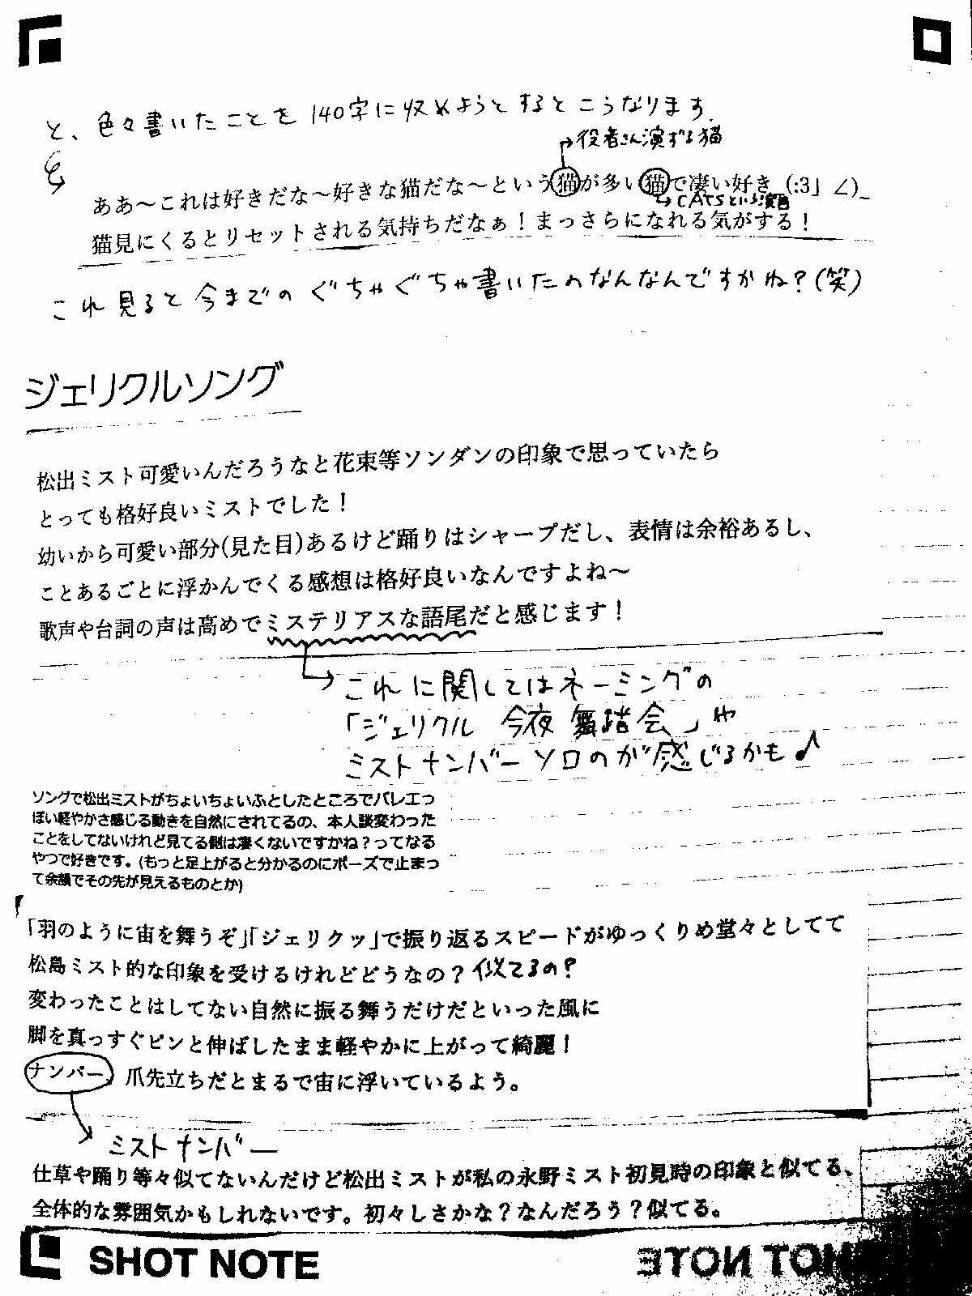 と、色々書いたことを140字に収めようとするとこうなります.
役者さん演ずる猫
ああ〜これは好きだな〜好きな猫だな〜という猫が多い猫で凄い好き_(:3」∠)_
CATSという演目
猫見にくるとリセットされる気持ちだなぁ！まっさらになれる気がする！
これ見ると今までのぐちゃぐちゃ書いたのなんなんですかね?(笑)
ジェリクルソング
松出ミスト可愛いんだろうなと花束等ソンダンの印象で思っていたら
とっても格好良いミストでした！
幼いから可愛い部分(見た目)あるけど踊りはシャープだし、表情は余裕あるし、
ことあるごとに浮かんでくる感想は格好良いなんですよね〜
歌声や台詞の声は高めでミステリアスな語尾だと感じます！
これに関してはネーミングの
「ジェリクル 今夜 舞踏会」や
ミストナンバーソロのが感じるかも♪
ソングで松出ミストがちょいちょいふとしたところでバレエっ
ぽい軽やかさ感じる動きを自然にされてるの、本人談変わった
ことをしてないけれど見てる側は凄くないですかね？ってなる
やつで好きです。(もっと足上がると分かるのにポーズで止まっ
て余韻でその先が見えるものとか)
「羽のように宙を舞うぞ」「ジェリクッ」で振り返るスピードがゆっくりめ堂々としてて
松島ミスト的な印象を受けるけれどどうなの？似てるの?
変わったことはしてない自然に振る舞うだけだといった風に
脚を真っすぐピンと伸ばしたまま軽やかに上がって綺麗！
ナンバー、爪先立ちだとまるで宙に浮いているよう。
ミストナンバー
仕草や踊り等々似てないんだけど松出ミストが私の永野ミスト初見時の印象と似てる、
全体的な雰囲気かもしれないです。初々しさかな？なんだろう？似てる。
SHOT NOTE